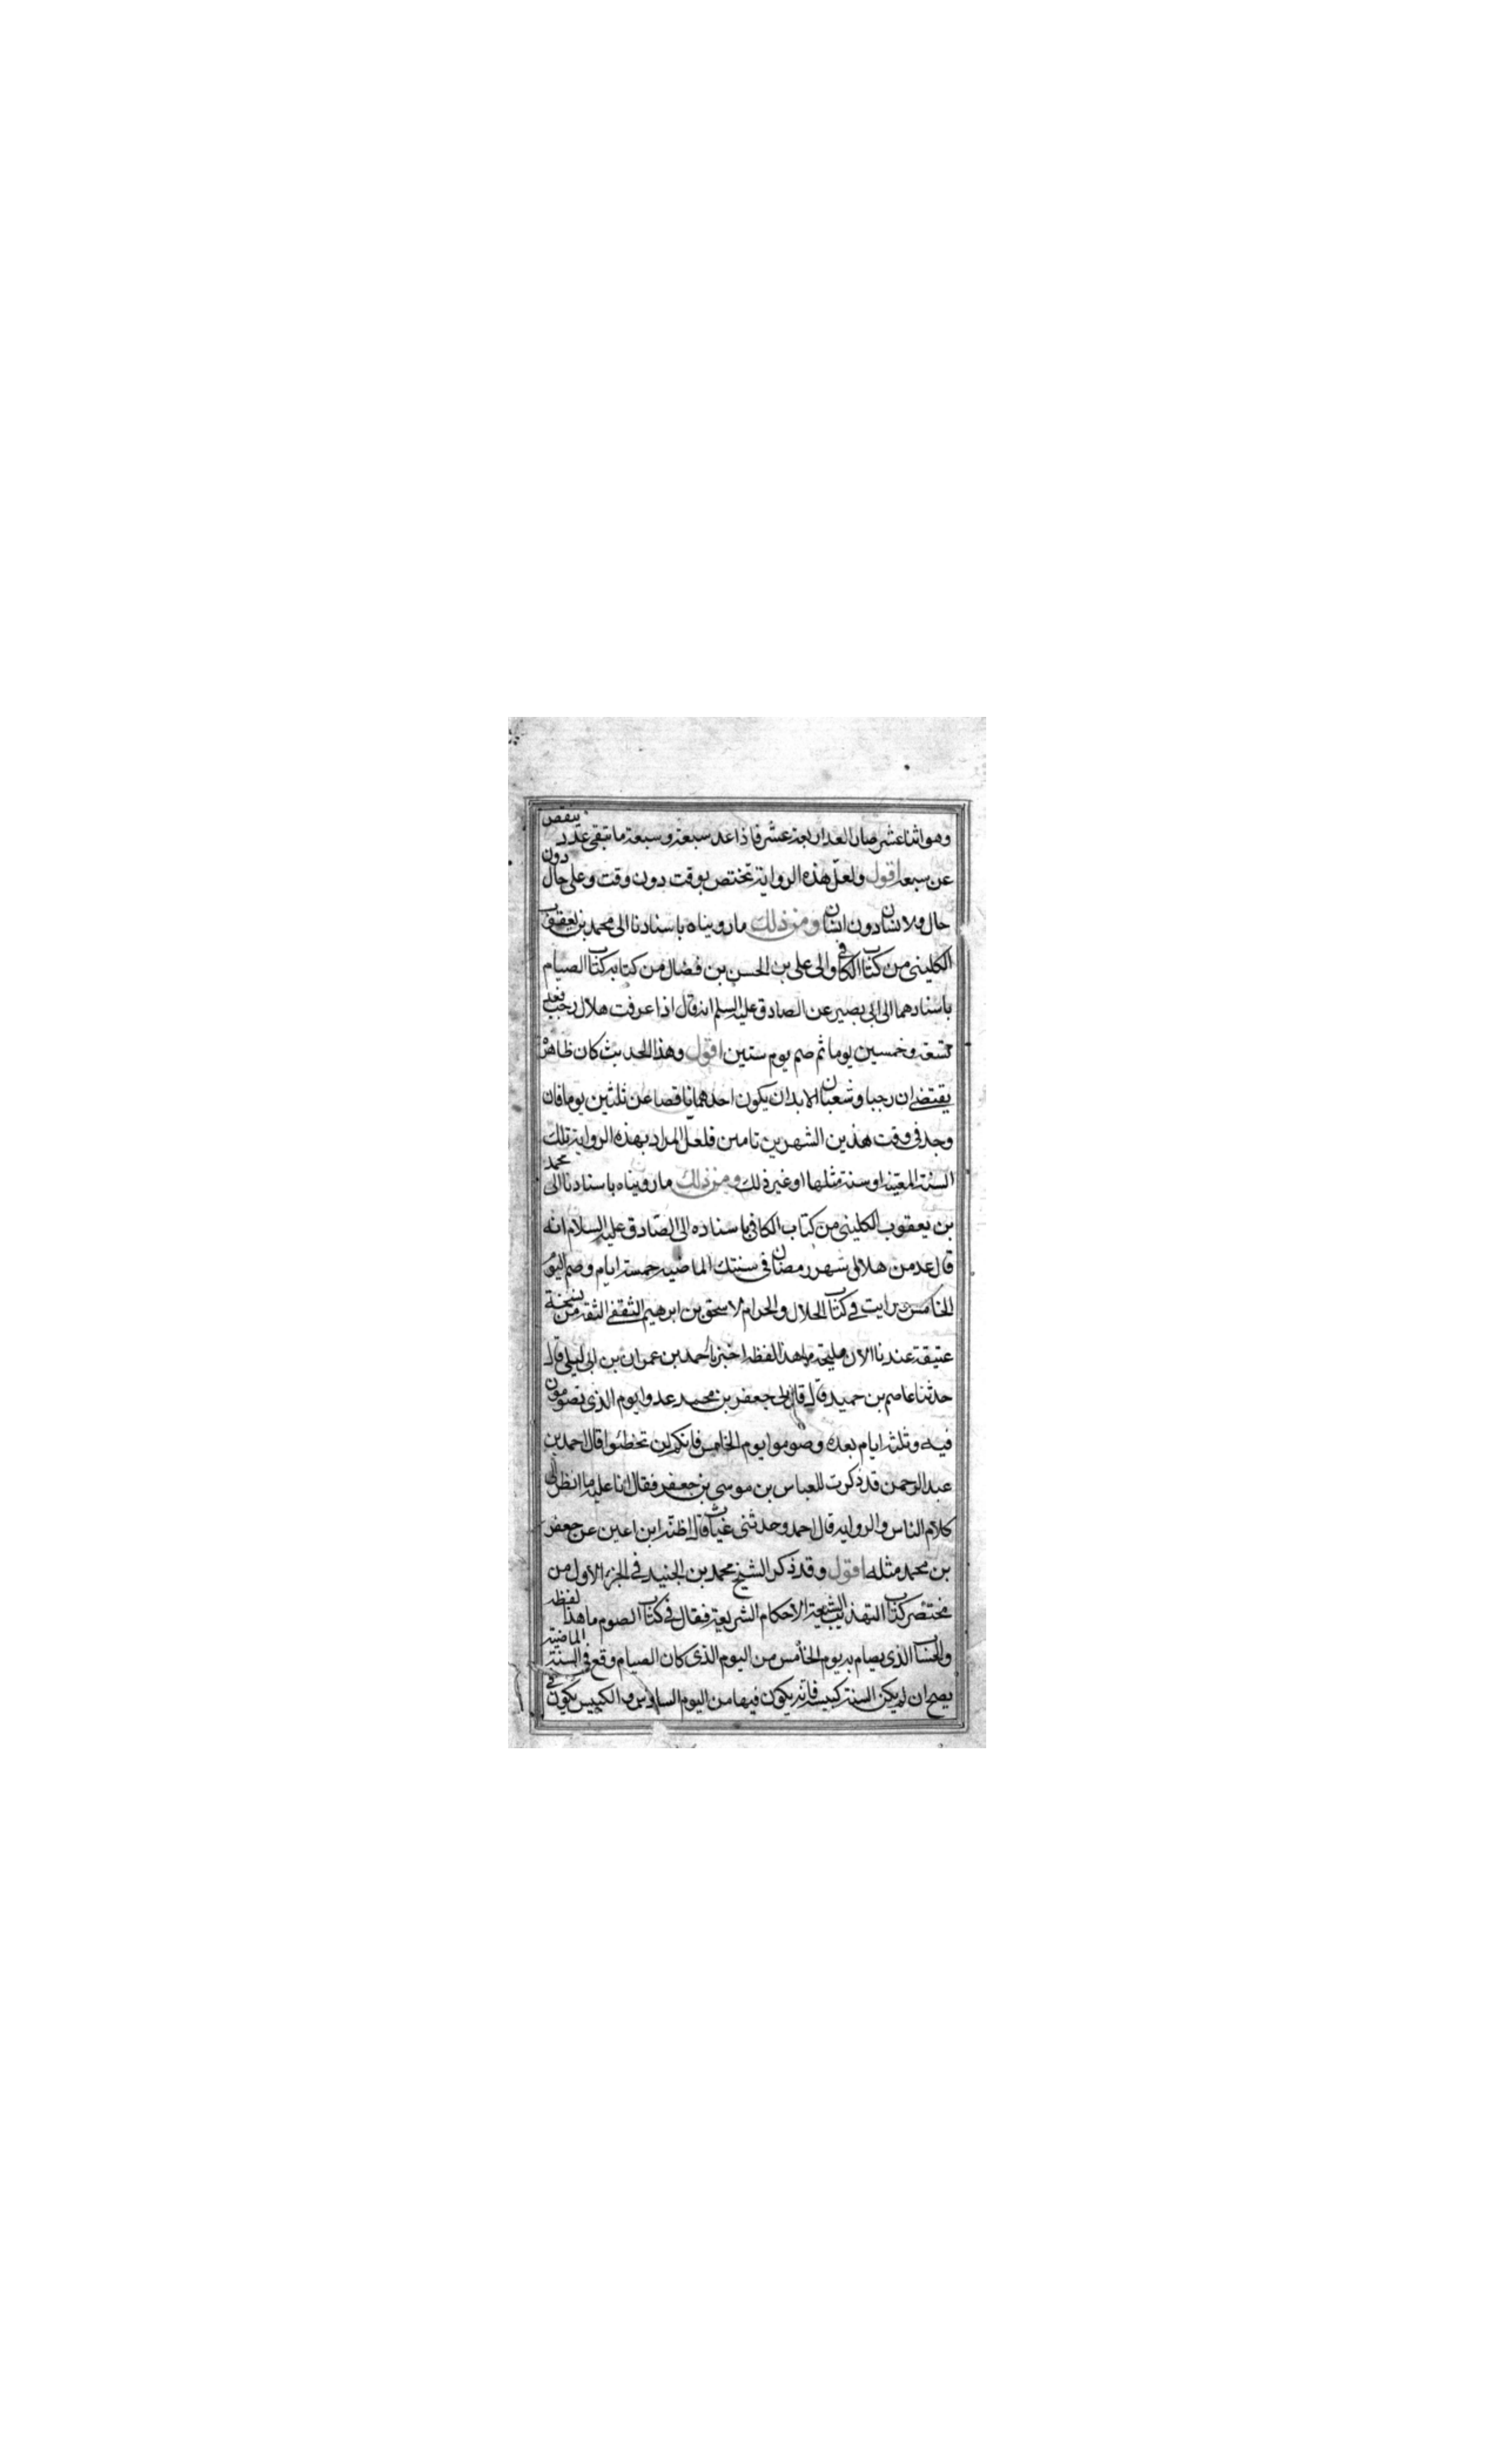 وهو اثنا عشر صار العدد اربعة عشر فاذا عد سبعة وسبعة ما تبقى عدد ينقص
عن سبعه اقول ولعل هذه الرواية تختص بوقت دون وقت وعلى حال دون
حال ولانسان دون انسان ومن ذلك مارويناه باسنادنا الى محمد بن يعقوب
الكليني من كتاب الكافي والى علي بن الحسن بن فضال من كتابه كتاب الصيام
باسنادهما الى ابي بصير عن الصادق عليه السلم انه قال اذا عرفت هلال رجب فعد
تسعة وخمسين يوما ثم صم يوم ستين اقول وهذا الحديث كان ظاهره
يقتضي ان رجبا وشعبان لابد ان يكون احدهما ناقصا عن ثلثين يوما فان
وجد في وقت هذين الشهرين تامين فلعل المراد بهذه الرواية تلك
السنة المعينة او سنة مثلها او غير ذلك ومن ذلك مارويناه باسنادنا الى محمد
بن يعقوب الكليني من كتاب الكافي باسناده الى الصادق عليه السلام انه
قال عد من هلال شهر رمضان في سنتك الماضيه خمسة ايام وصم اليوم
الخامس ورايت في كتاب الحلال والحرام لاسحق بن ابرهيم الثقفي الثقة من نسخة
عتيقة عندنا الان مليحة ماهذا لفظه اخبرنا احمد بن عمران بن ابي ليلى قال
حدثنا عاصم بن حميد قال قال لي جعفر بن محمد عدوا يوم الذى تصومون
فيه وثلثة ايام بعده وصوموا يوم الخامس فانكم لن تخطئوا قال احمد بن
عبد الرحمن قد ذكرت للعباس بن موسى بن جعفر فقال انا عليه ما انظر الى
كلام الناس والروايه قال احمد وحدثنى غياث قال اظنه ابن اعين عن جعفر
بن محمد مثله اقول وقد ذكر الشيخ محمد بن الجنيد في الجزء الاول من
مختصر كتاب التهذيب الشيعة لاحكام الشريعة فقال في كتاب الصوم ماهذا لفظه
والحساب الذى يصام به يوم الخامس من اليوم الذى كان الصيام وقع في السنة الماضية
يصح ان لم يكن السنة كبيسة فانه يكون فيها من اليوم السادس والكبيس يكون في